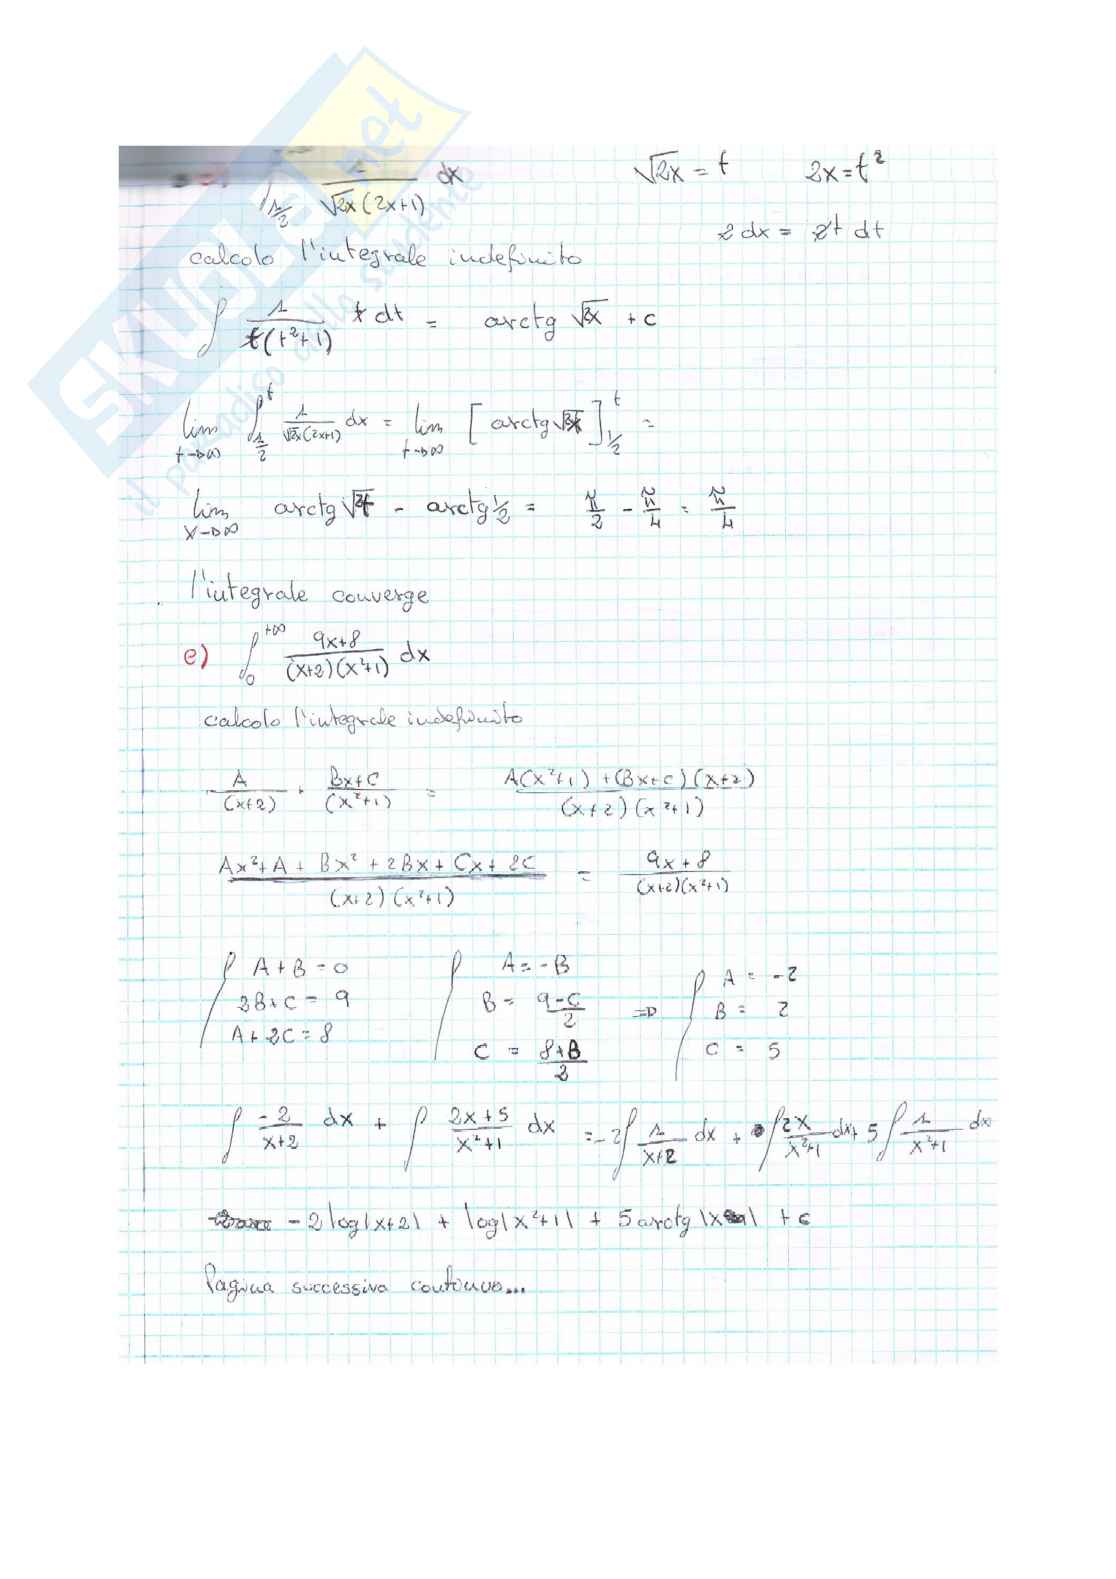 ∫_{1/2} 1/(√2x (2x+1)) dx   √2x = t   2x = t²
2dx = 2t dt
calcolo l'integrale indefinito
∫ 1/(t(t²+1)) t dt = arctg √2x + c
lim_{t→∞} ∫_{1/2}^{t} 1/(√2x(2x+1)) dx = lim_{t→∞} [arctg √2x]_{1/2}^{t} =
lim_{x→∞} arctg √2t - arctg 1/2 = π/2 - π/4 = π/4
l'integrale converge
e) ∫_0^{+∞} (9x+8)/((x+2)(x²+1)) dx
calcolo l'integrale indefinito
A/(x+2) + (Bx+C)/(x²+1) = (A(x²+1)+(Bx+c)(x+2))/((x+2)(x²+1))
(Ax²+A+Bx²+2Bx+Cx+2C)/((x+2)(x²+1)) = (9x+8)/((x+2)(x²+1))
{ A+B=0   { A=-B   { A = -2
2B+C = 9   B = (9-C)/2 ⇒ B = 2
A+2C=8   C = (8+B)/2   C = 5
∫ -2/(x+2) dx + ∫ (2x+5)/(x²+1) dx = -2∫ 1/(x+2) dx + ∫ 2x/(x²+1) dx + 5∫ 1/(x²+1) dx
-2log|x+2| + log|x²+1| + 5arctg|x| + c
Pagina successiva continuo...
SKUOLA.net
il paradiso dello studente